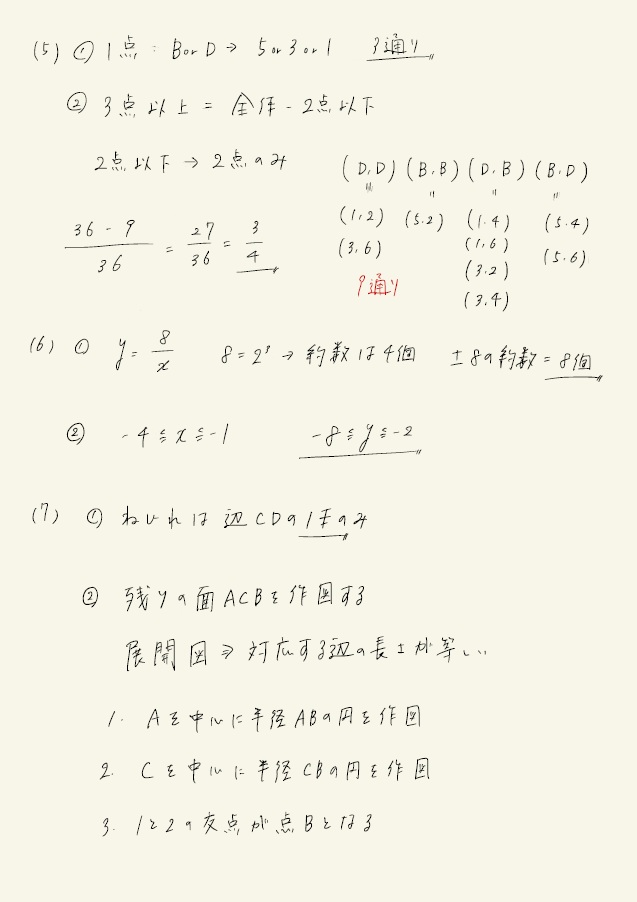 (5) ① 1点：B or D → 5 or 3 or 1 3通り
② 3点以上 = 全体 - 2点以下
2点以下 → 2点のみ (D,D) (B,B) (D,B) (B,D)
(1,2) (5.2) (1.4) (5.4)
36 - 9 / 36 = 27 / 36 = 3 / 4
(3,6) (1,6) (5.6)
9通り (3.2)
(3,4)
(6) ① y = 8 / x 8 = 2³ → 約数は4個 ±8の約数 = 8個
② -4 ≦ x ≦ -1 -8 ≦ y ≦ -2
(7) ① ねじれは 辺CDの1本のみ
② 残りの面ACBを作図する
展開図 ⇒ 対応する辺の長さが等しい
1. Aを中心に半径ABの円を作図
2. Cを中心に半径CBの円を作図
3. 1と2の交点が点Bとなる